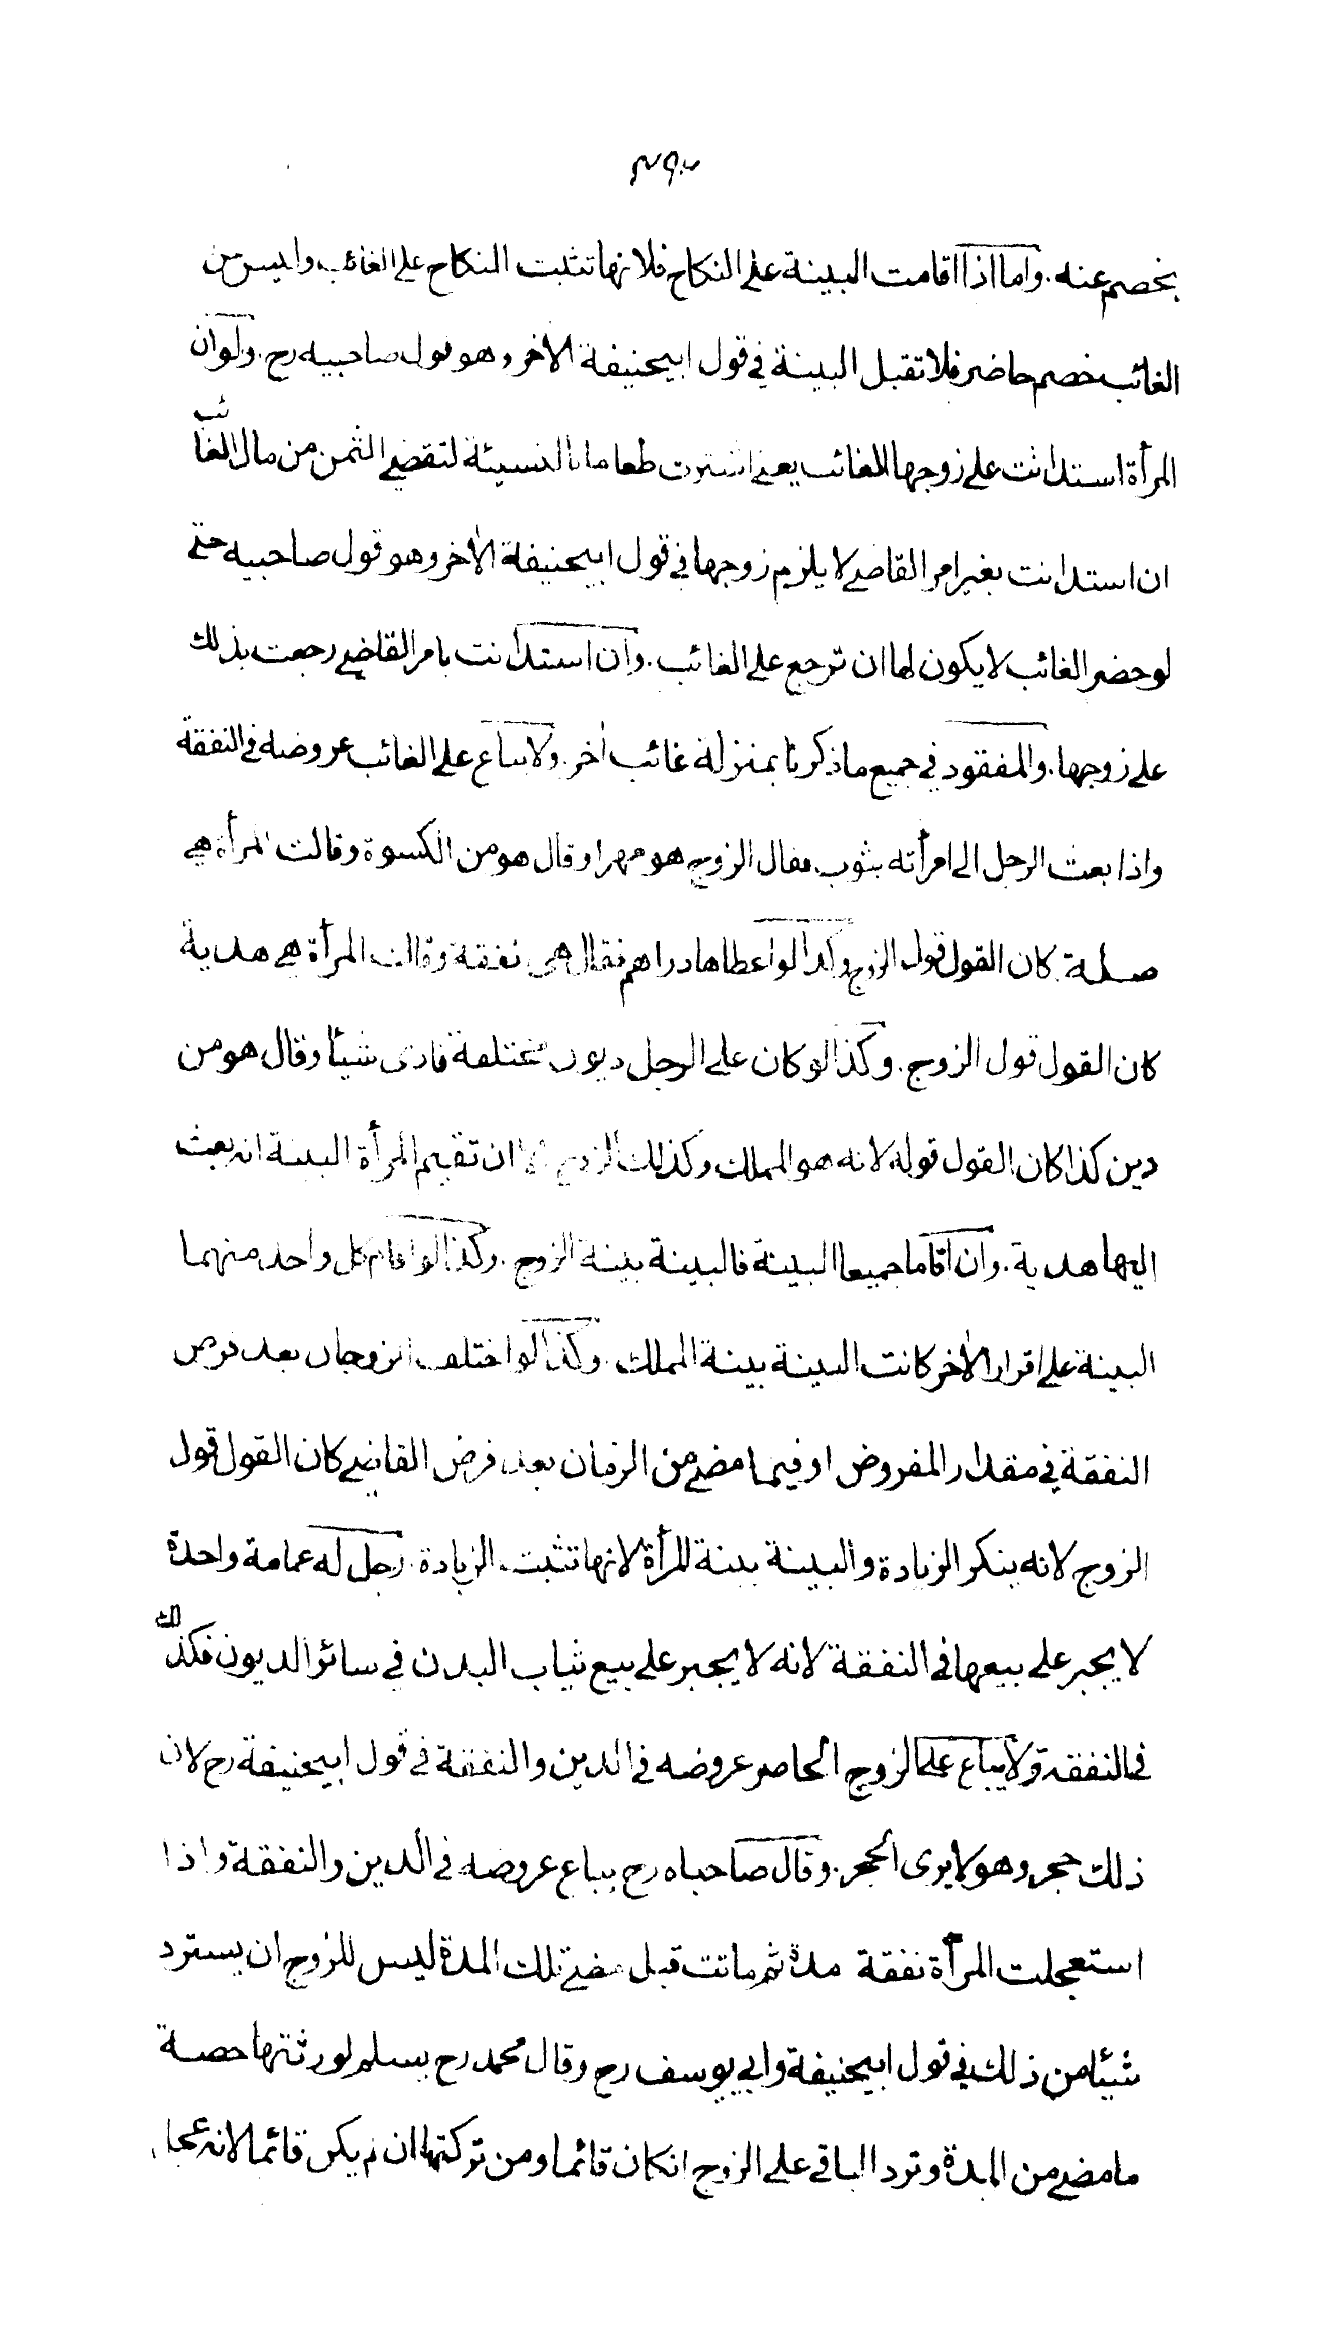 بخصم عنه . واما اذا اقامت البينة على النكاح فلانها تثبت النكاح على الغائب وليس من
الغائب خصم حاضر فلا تقبل البينة في قول ابيحنيفة الاخر وهو قول صاحبيه رح . ولو ان
المرأة استدانت على زوجها الغائب يعني اشترت طعاما بالنسيئة لتقضي الثمن من مال الغائب
ان استدانت بغير امر القاضي لا يلزم زوجها في قول ابيحنيفة الاخر وهو قول صاحبيه حتى
لو حضر الغائب لا يكون لها ان ترجع على الغائب . وان استدانت بامر القاضي رجعت بذلك
على زوجها . والمفقود في جميع ما ذكرنا بمنزلة غائب اخر . ولا يباع على الغائب عروضه في النفقة
واذا بعث الرجل الى امرأته بثوب فقال الزوج هو مهر او قال هو من الكسوة وقالت المرأة هي
صلة كان القول قول الزوج وكذا لو اعطاها دراهم فقال هي نفقة وقالت المرأة هي هدية
كان القول قول الزوج . وكذا لو كان على الرجل ديون مختلفة فادى شيئا وقال هو من
دين كذا كان القول قوله لانه هو المملك وكذلك الزوج الا ان تقيم المرأة البينة انه بعث
اليها هدية . وان اقاما جميعا البينة فالبينة بينة الزوج . وكذا لو اقام كل واحد منهما
البينة على اقرار الاخر كانت البينة بينة المملك . وكذا لو اختلف الزوجان بعد فرض
النفقة في مقدار المفروض او فيما مضى من الزمان بعد فرض القاضي كان القول قول
الزوج لانه ينكر الزيادة والبينة بينة المرأة لانها تثبت الزيادة . رجل له عمامة واحدة
لا يجبر على بيعها في النفقة لانه لا يجبر على بيع ثياب البدن في سائر الديون فكذلك
في النفقة ولا يباع على الزوج الحاضر عروضه في الدين والنفقة في قول ابيحنيفة رح لان
ذلك حجر وهو لا يرى الحجر . وقال صاحباه رح يباع عروضه في الدين والنفقة واذا
استعجلت المرأة نفقة مدة ثم ماتت قبل مضي تلك المدة ليس للزوج ان يسترد
شيئا من ذلك في قول ابيحنيفة وابي يوسف رح وقال محمد رح يسلم لورثتها حصة
ما مضى من المدة وترد الباقي على الزوج انكان قائما ومن تركتها ان لم يكن قائما لانه عجل